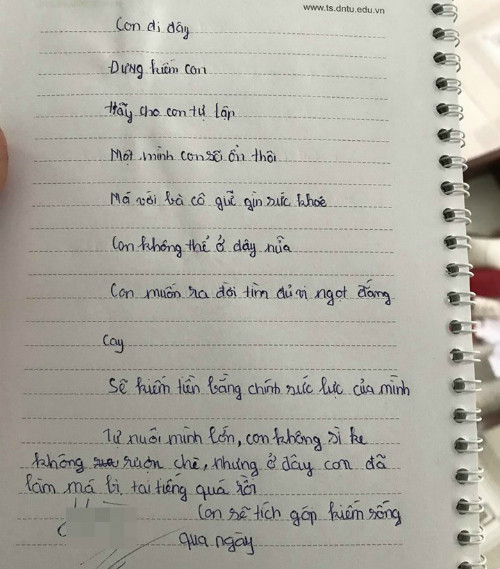 www.ts.dntu.edu.vn
Con đi đây
Đừng kiếm con
Hãy cho con tự lập
Một mình con sẽ ổn thôi
Má với bà cô giữ gìn sức khoẻ
Con không thể ở đây nữa
Con muốn ra đời tìm đủ vị ngọt đắng
Cay
Sẽ kiếm tiền bằng chính sức lực của mình
Tự nuôi mình lớn, con không sì ke
không rượu chè, nhưng ở đây con đã
làm má bị tai tiếng quá rồi
Con sẽ tích góp kiếm sống
qua ngày